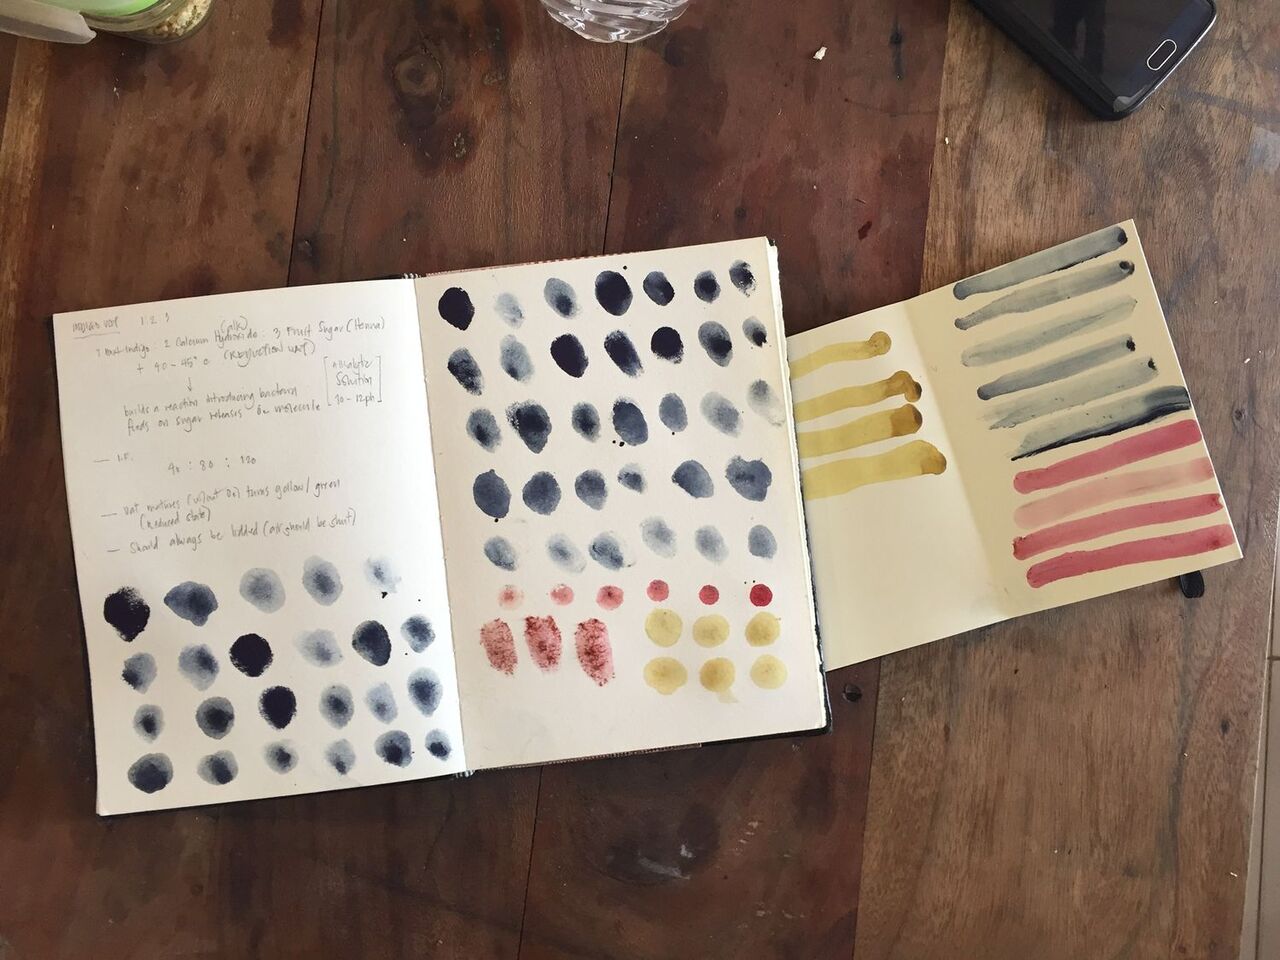 INDIGO VAT 1 2 3
(alk)
1 Part Indigo : 2 Calcium Hydroxide : 3 Fruit Sugar (Henna)
+ 40 - 45° c (REDUCTION VAT)
↓
builds a reaction introducing bacteria
feeds on sugar releases molecule
[ Solution
30 - 12ph ]
— I.F.
40 : 80 : 120
— Vat matures (w/out O2) turns yellow / green
(Reduced state)
— Should always be lidded (air should be shut)